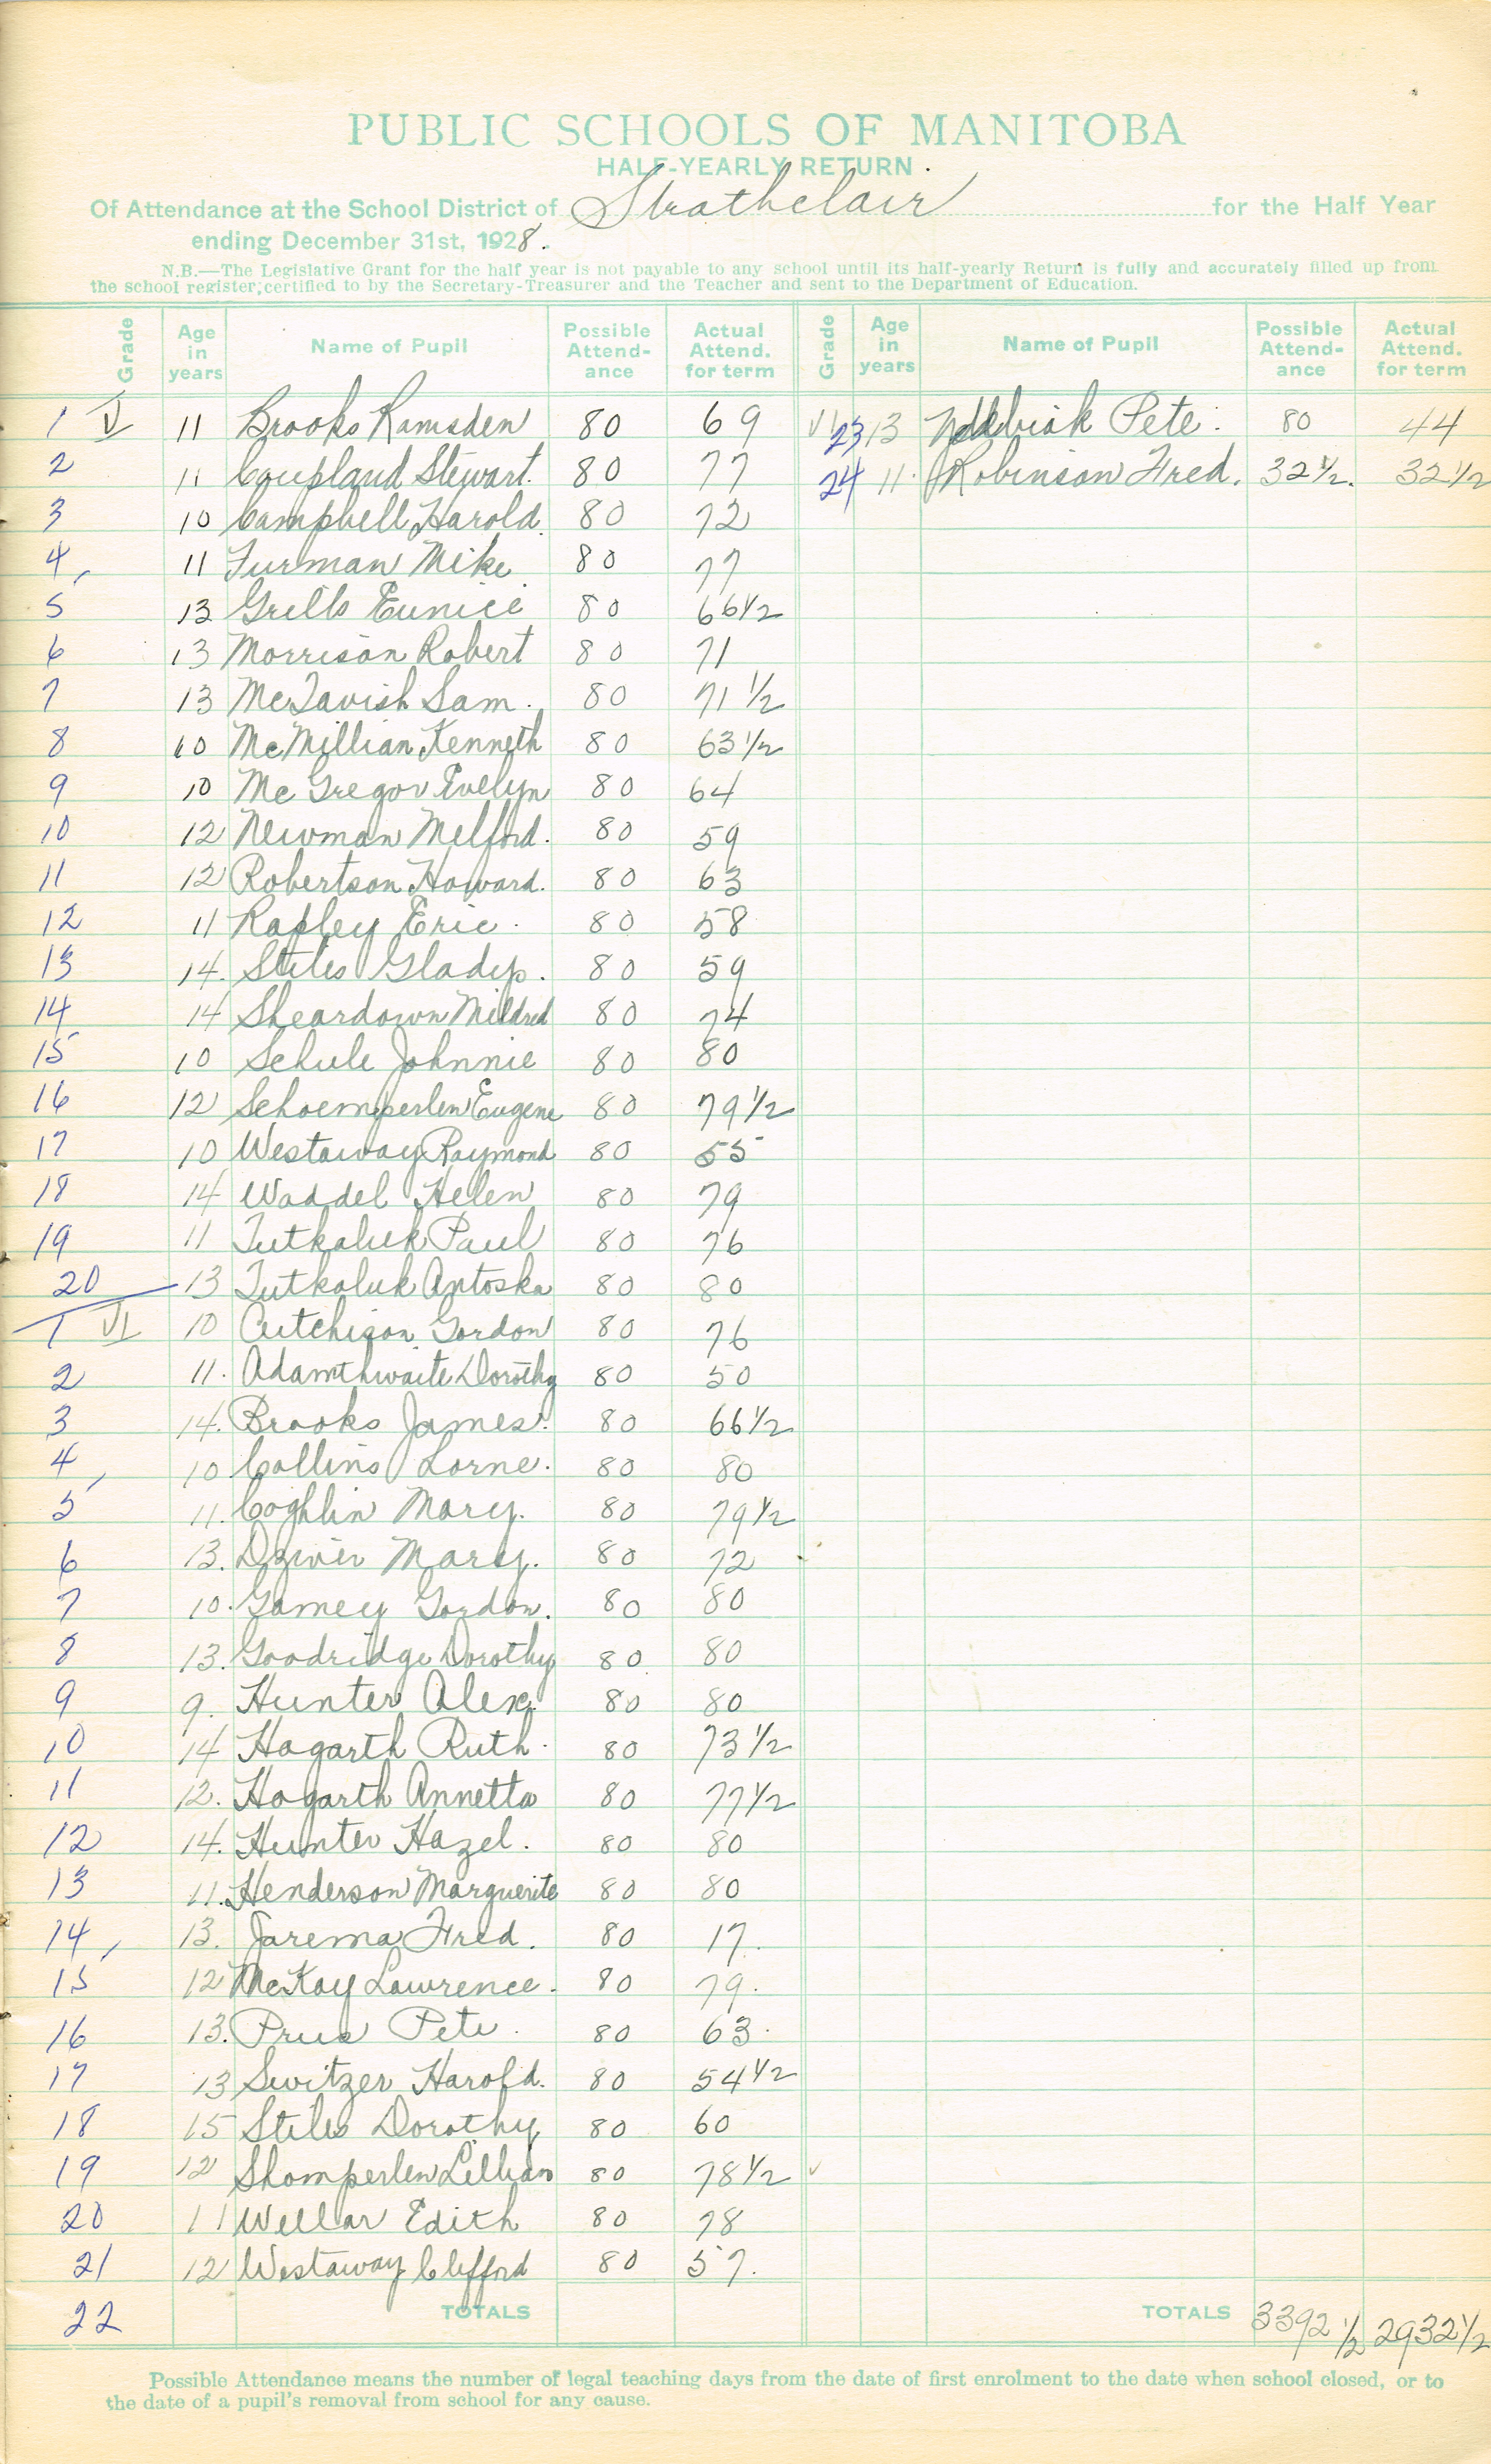 PUBLIC SCHOOLS OF MANITOBA
HALF-YEARLY RETURN
Of Attendance at the School District of Strathclair for the Half Year
ending December 31st, 1928.
N.B.—The Legislative Grant for the half year is not payable to any school until its half-yearly Return is fully and accurately filled up from
the school register, certified to by the Secretary-Treasurer and the Teacher and sent to the Department of Education.
Grade Age in years Name of Pupil Possible Attend-ance Actual Attend. for term Grade Age in years Name of Pupil Possible Attend-ance Actual Attend. for term
1 V 11 Brooks Ramsden 80 69 VI 23 13 Pete. 80 44
2 11 Coupland Stewart. 80 77 24 11. Robinson Fred. 32 1/2. 32 1/2
3 10 Campbell Harold. 80 72
4, 11 Furman Mike 80 77
5 13 Grills Eunice 80 66 1/2
6 13 Morrison Robert 80 71
7 13 McTavish Sam. 80 71 1/2
8 10 McMillian Kenneth 80 63 1/2
9 10 McGregor Evelyn 80 64
10 12 Newman Melford. 80 59
11 12 Robertson Howard. 80 63
12 11 Rapley Eric. 80 58
13 14. Stiles Gladys. 80 59
14 14 Sheardown Mildred 80 74
15 10 Schule Johnnie 80 80
16 12 Schoemperlen Eugene 80 79 1/2
17 10 Westaway Raymond 80 55
18 14 Waddel Helen 80 79
19 11 Tutkaluk Paul 80 76
20 13 Tutkaluk Antoska 80 80
1 VI 10 Aitchison Gordon 80 76
2 11. Adamthwaite Dorothy 80 50
3 14. Brooks James. 80 66 1/2
4, 10 Collins Lorne. 80 80
5 11. Coghlin Mary. 80 79 1/2
6 13. Dzwir Mary. 80 72
7 10. Gamey Gordon. 80 80
8 13. Goodridge Dorothy 80 80
9 9. Hunter Alex. 80 80
10 14 Hogarth Ruth. 80 73 1/2
11 12. Hogarth Annetta 80 77 1/2
12 14. Hunter Hazel. 80 80
13 11. Henderson Marguerite 80 80
14, 13. Jarema Fred. 80 17.
15 12 McKay Lawrence. 80 79.
16 13. Prus Pete. 80 63.
17 13 Switzer Harold. 80 54 1/2
18 15 Stiles Dorothy 80 60
19 12 Shomperlen Lillian 80 78 1/2
20 11 Wellar Edith 80 78
21 12 Westaway Clifford 80 57.
22 TOTALS TOTALS 3392 1/2 2932 1/2
Possible Attendance means the number of legal teaching days from the date of first enrolment to the date when school closed, or to
the date of a pupil's removal from school for any cause.